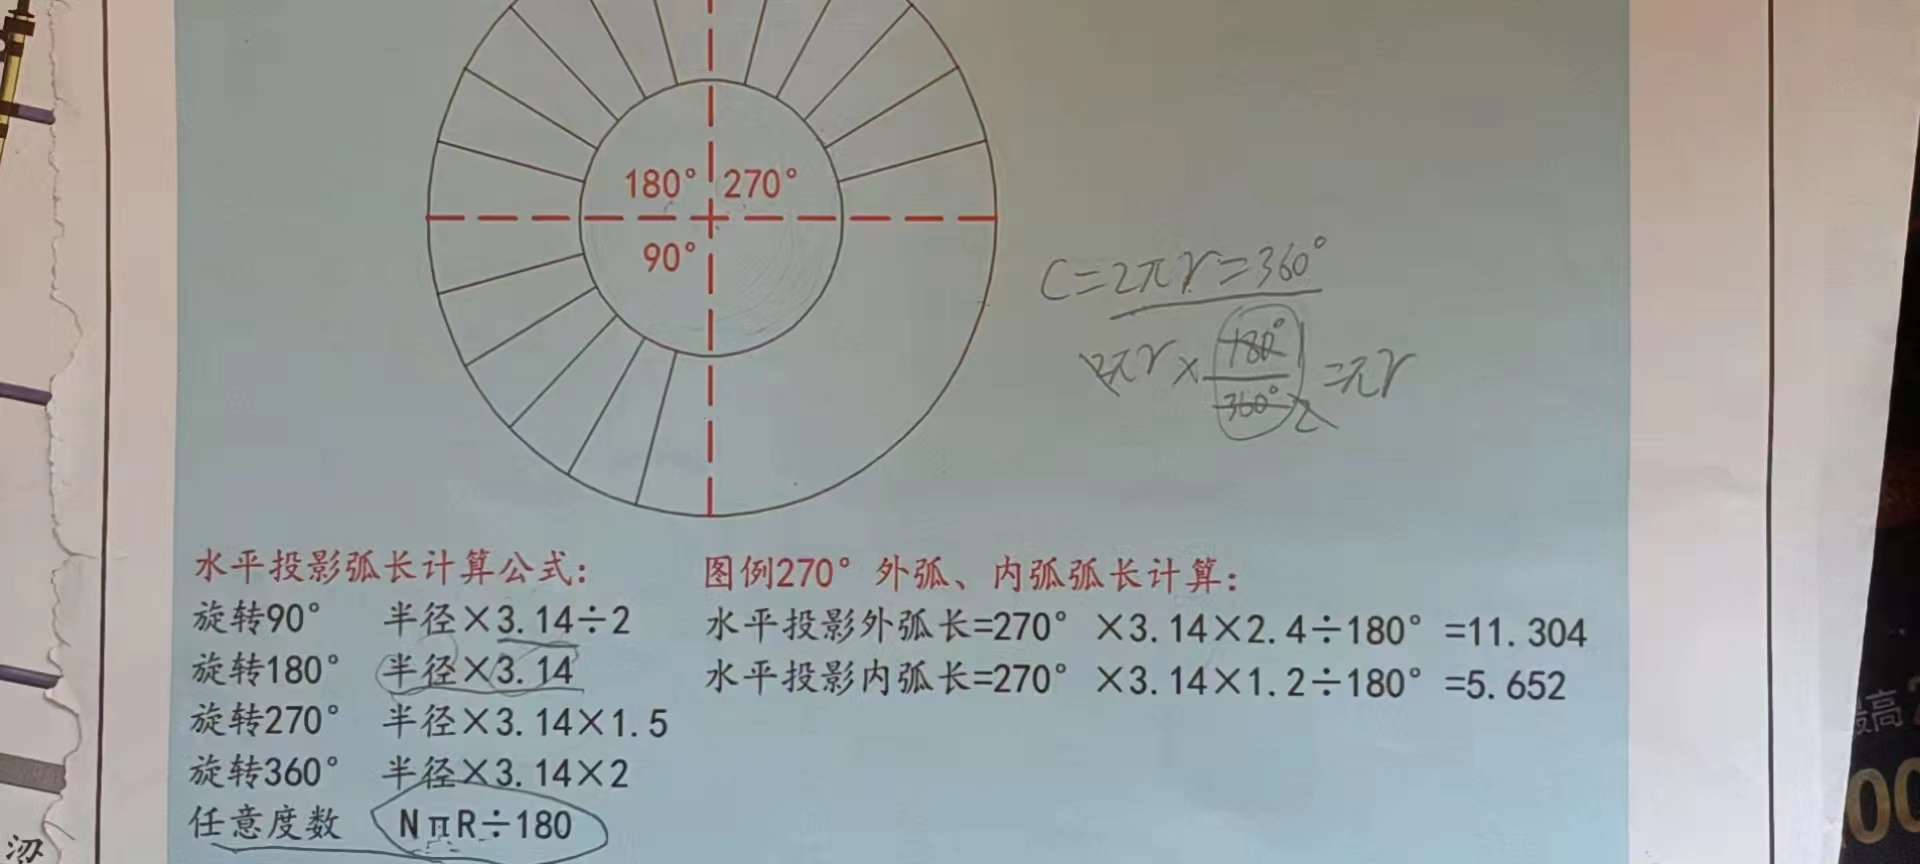 180° 270°
90°
C=2πr=360°
2πr×180°/360°=πr
1
2
水平投影弧长计算公式:
旋转90° 半径×3.14÷2
旋转180° 半径×3.14
旋转270° 半径×3.14×1.5
旋转360° 半径×3.14×2
任意度数 NπR÷180
图例270°外弧、内弧弧长计算:
水平投影外弧长=270°×3.14×2.4÷180°=11.304
水平投影内弧长=270°×3.14×1.2÷180°=5.652
最高
00